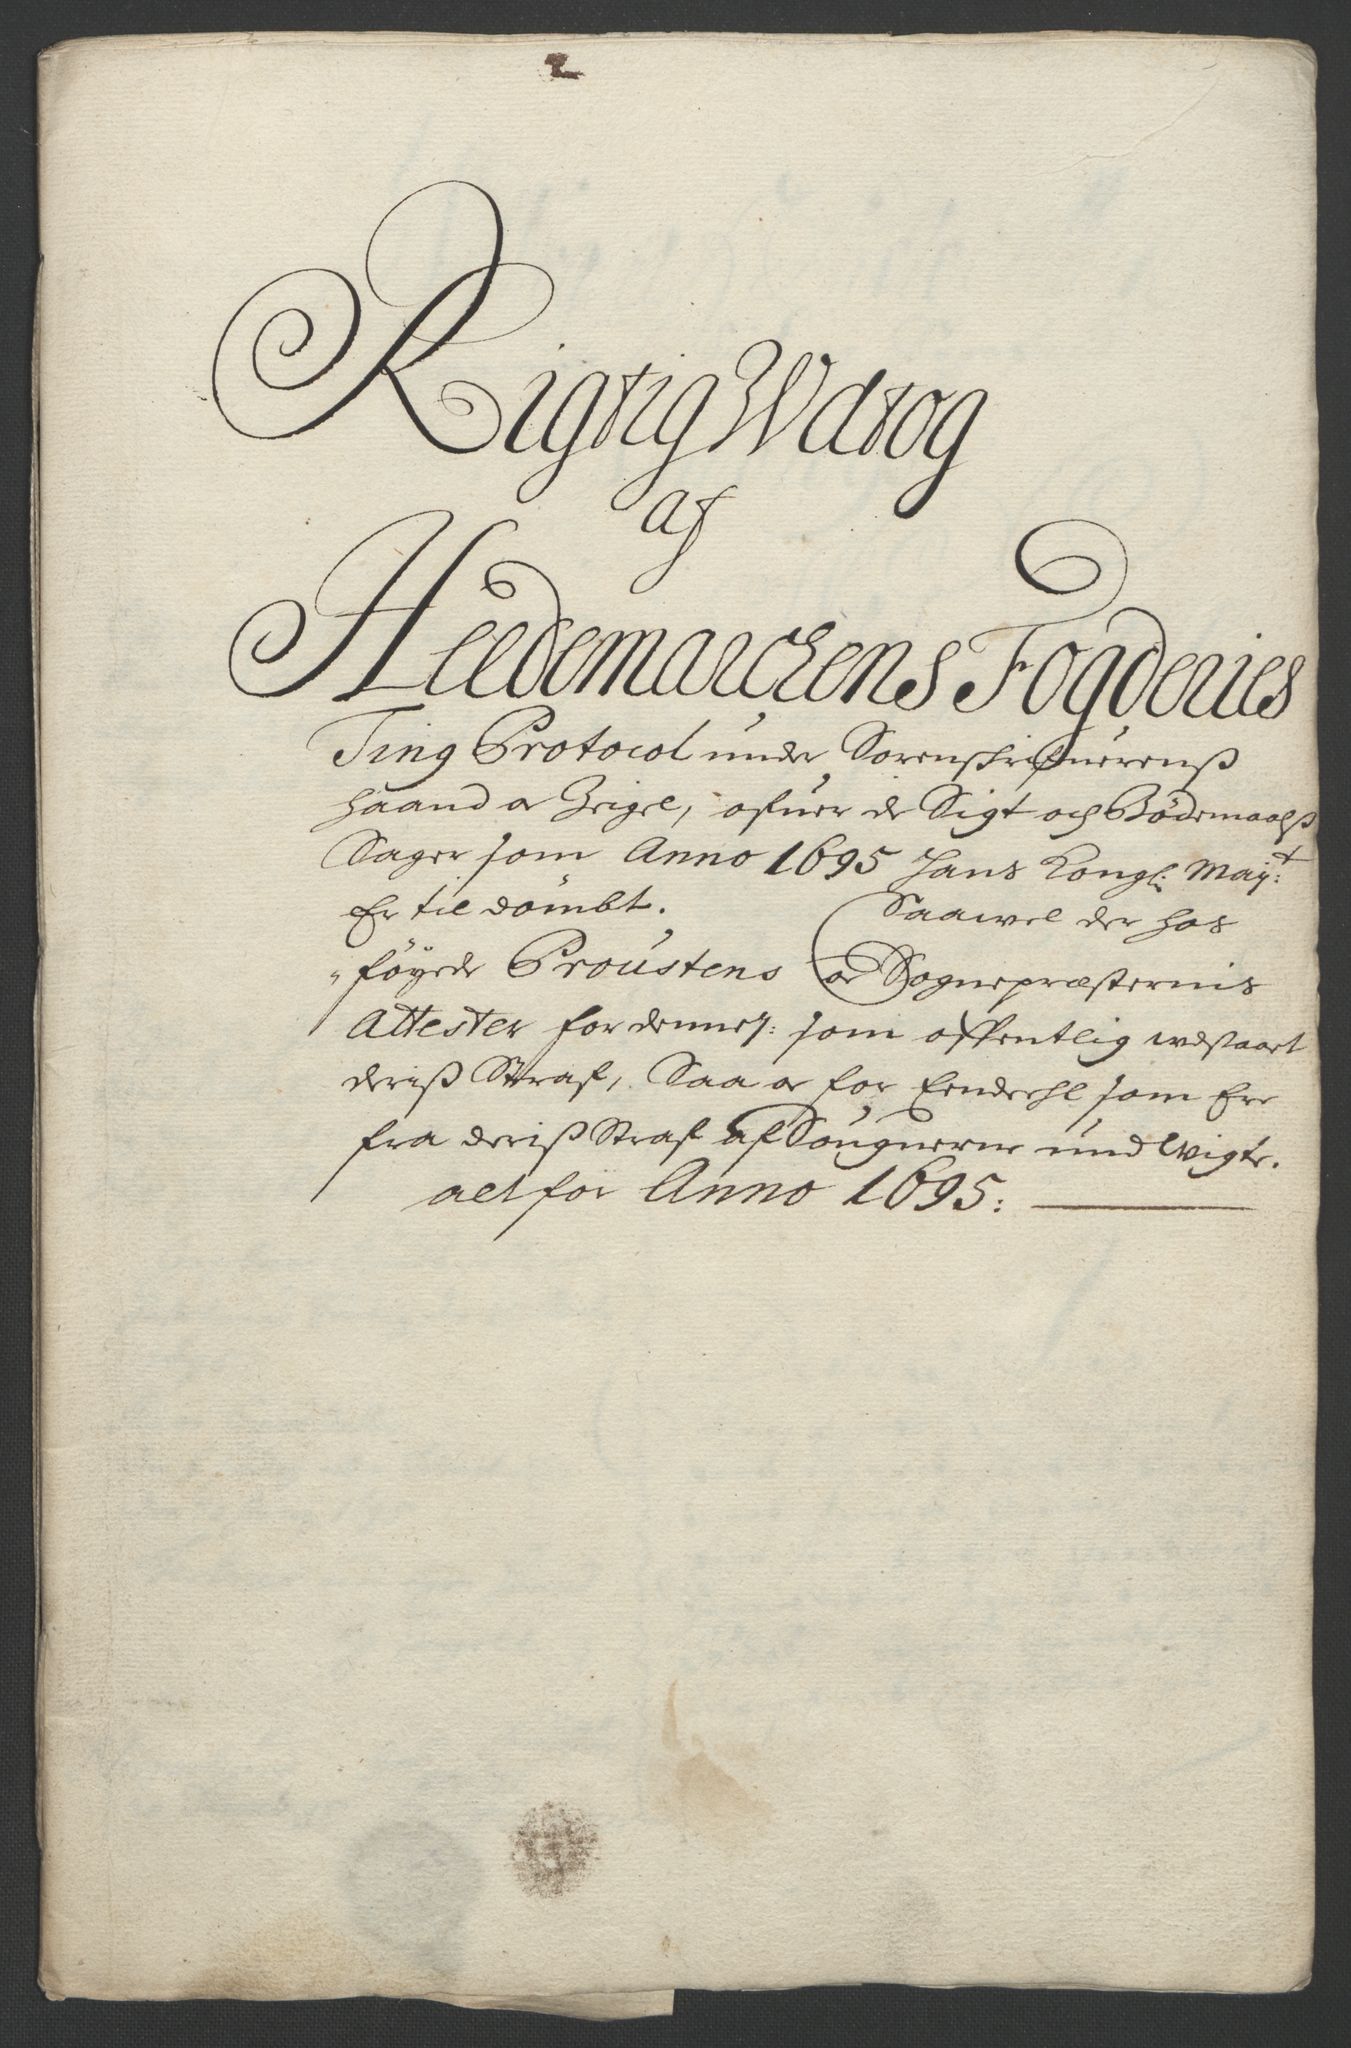 Rigtig Wdtog
af
Heedemarckens Fogderies
Ting Protocol under Sorenskrifuerenß
haand oc Zeigel, ofuer de Sigt och Bödemaalß
Sager som Anno 1695 Hans Kongl: May:t
Er til dömbt. Saawel der hos
föyede Proustens oc Sognepræsternis
Attester for dennes: som offentlig wdstaaet
deriß Straf, Saa oc for Eendeehl som Ere
fra deriß Straf af Sougnerne undwigte.
alt for Anno 1695: